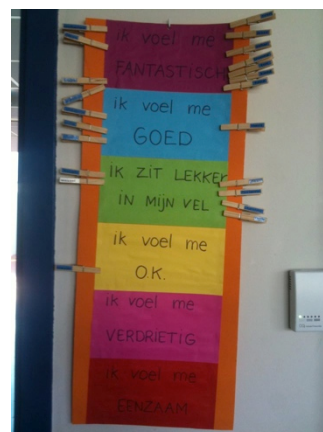 ik voel me
FANTASTISCH
ik voel me
GOED
ik ZIT LEKKER
IN MIJN VEL
ik voel me
O.K.
ik voel me
VERDRIETIG
ik voel me
EENZAAM